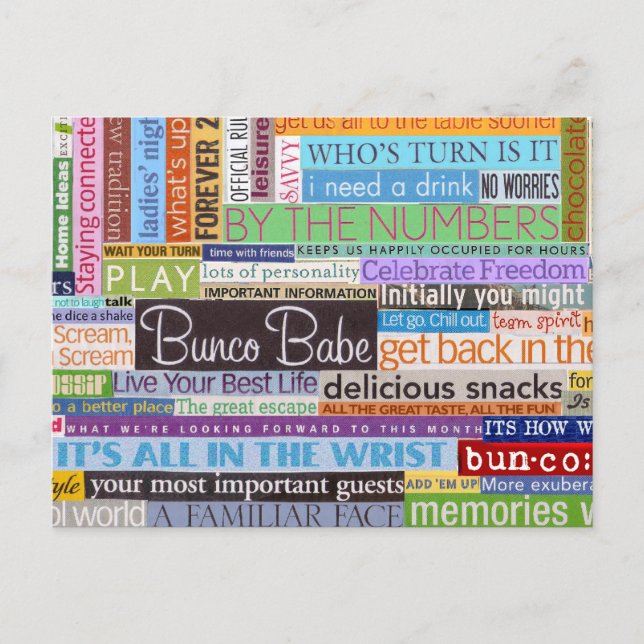 Home Ideas
EXCITI
Staying connecte
ew tradition
ladies' nigh
what's up
FOREVER 2
OFFICIAL RUL
leisure
SAVVY
get us all to the table sooner
WHO'S TURN IS IT
i need a drink
NO WORRIES
chocolate
BY THE NUMBERS
WAIT YOUR TURN
time with friends
KEEPS US HAPPILY OCCUPIED FOR HOURS.
PLAY
lots of personality
Celebrate Freedom
not to laugh
talk
IMPORTANT INFORMATION
Initially you might
e dice a shake
Let go. Chill out.
team spirit
Scream,
Scream
Bunco Babe
get back in the
OSSIP
Live Your Best Life
delicious snacks
for
o a better place
The great escape
ALL THE GREAT TASTE, ALL THE FUN
Is
WHAT WE'RE LOOKING FORWARD TO THIS MONTH
ITS HOW W
IT'S ALL IN THE WRIST
bun·co:
tyle
your most important guests
ADD 'EM UP
More exubera
ol world
A FAMILIAR FACE
memories w